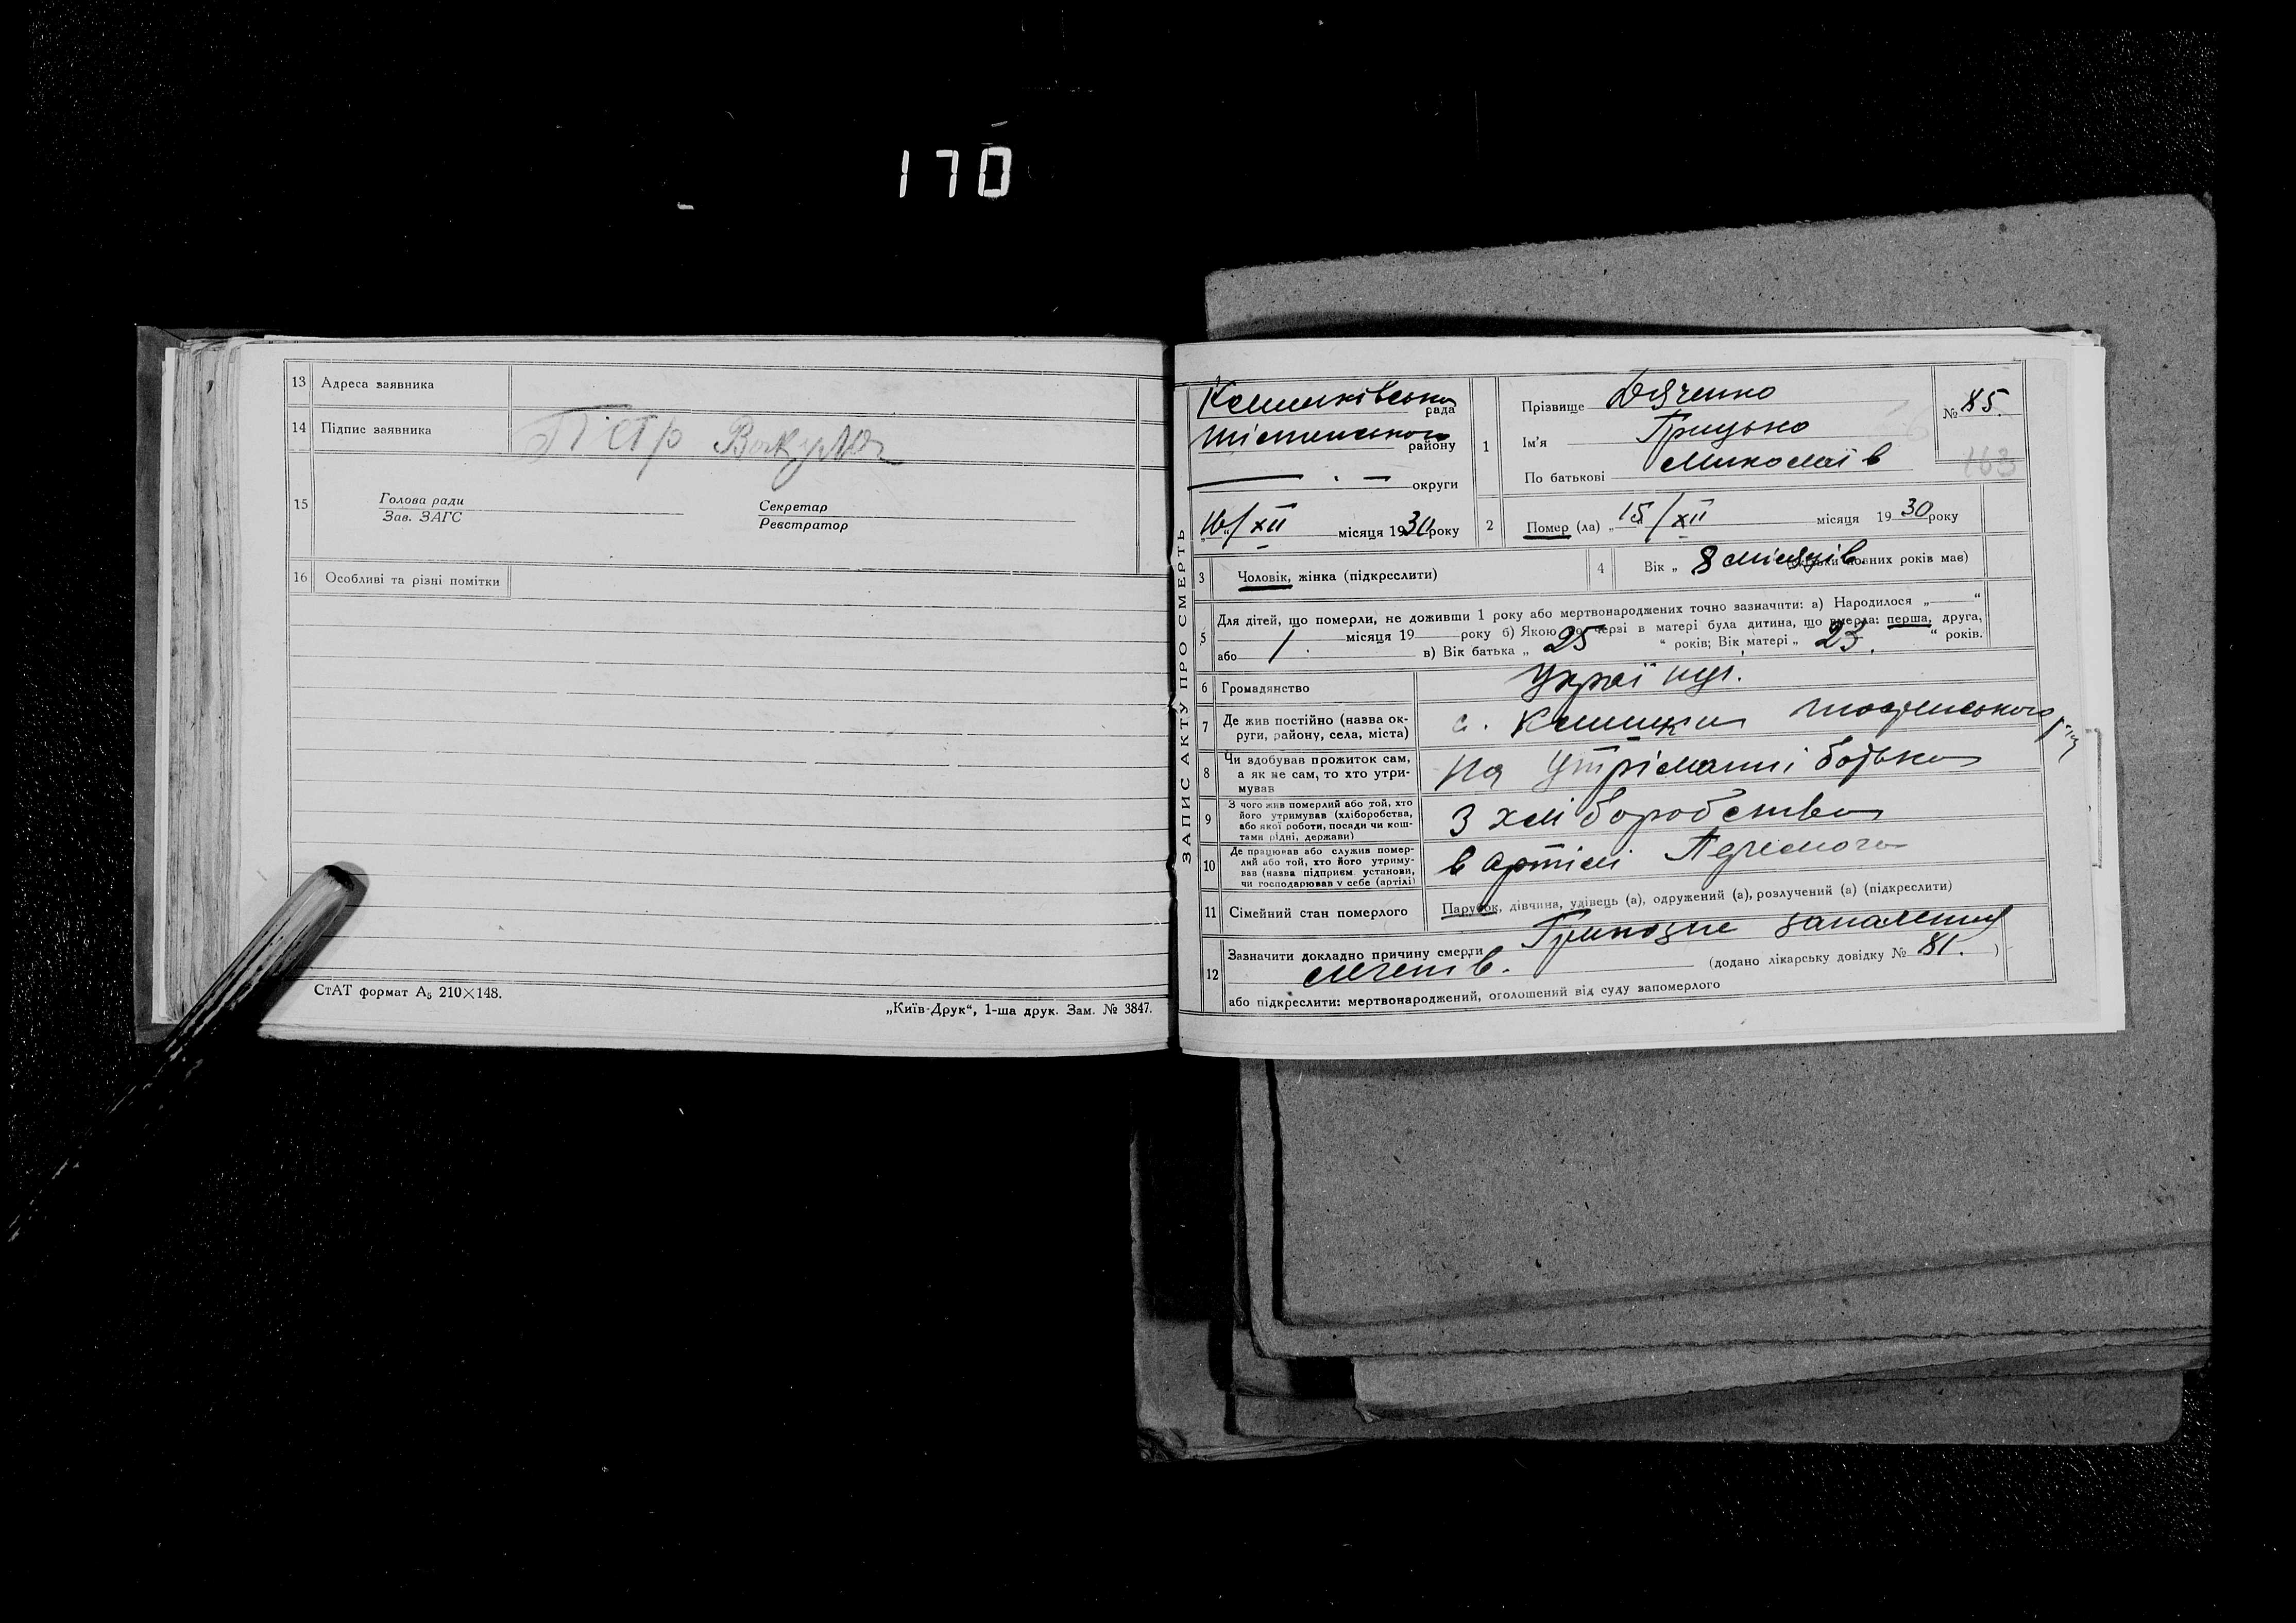 170
13 Адреса заявника
14 Підпис заявника Петр Вакула
15 Голова ради
Зав. ЗАГС
Секретар
Реєстратор
16 Особливі та різні помітки
СтАТ формат А₅ 210×148.
„Київ-Друк“, 1-ша друк. Зам. № 3847.
ЗАПИС АКТУ ПРО СМЕРТЬ
рада
району
— . — округи
„16“/XII місяця 1930 року
1 Прізвище Дяченко
Ім'я Грицько
По батькові Миколаїв
№ 85.
163
2 Помер (ла) „15“/XII місяця 1930 року
3 Чоловік, жінка (підкреслити)
4 Вік „ 8 місяців (скільки повних років має)
5 Для дітей, що померли, не доживши 1 року або мертвонароджених точно зазначити: а) Народилося „ “
місяця 19 року б) Якою по черзі в матері була дитина, що вмерла: перша, друга,
або 1. в) Вік батька „ 25 “ років; Вік матері „ 23. “ років.
6 Громадянство Україн.
7 Де жив постійно (назва ок-
руги, району, села, міста) с.
8 Чи здобував прожиток сам,
а як не сам, то хто утри-
мував на утріманні батька
9 З чого жив померлий або той, хто
його утримував (хліборобства,
або якої роботи, посади чи кош-
тами рідні, держави) З хліборобства
10 Де працював або служив помер-
лий або той, хто його утриму-
вав (назва підприєм. установи,
чи господарював у себе (артілі) в артілі
11 Сімейний стан померлого Парубок, дівчина, удівець (а), одружений (а), розлучений (а) (підкреслити)
12 Зазначити докладно причину смерти Грипозне запалення
легенів. (додано лікарську довідку № 81. )
або підкреслити: мертвонароджений, оголошений від суду запомерлого